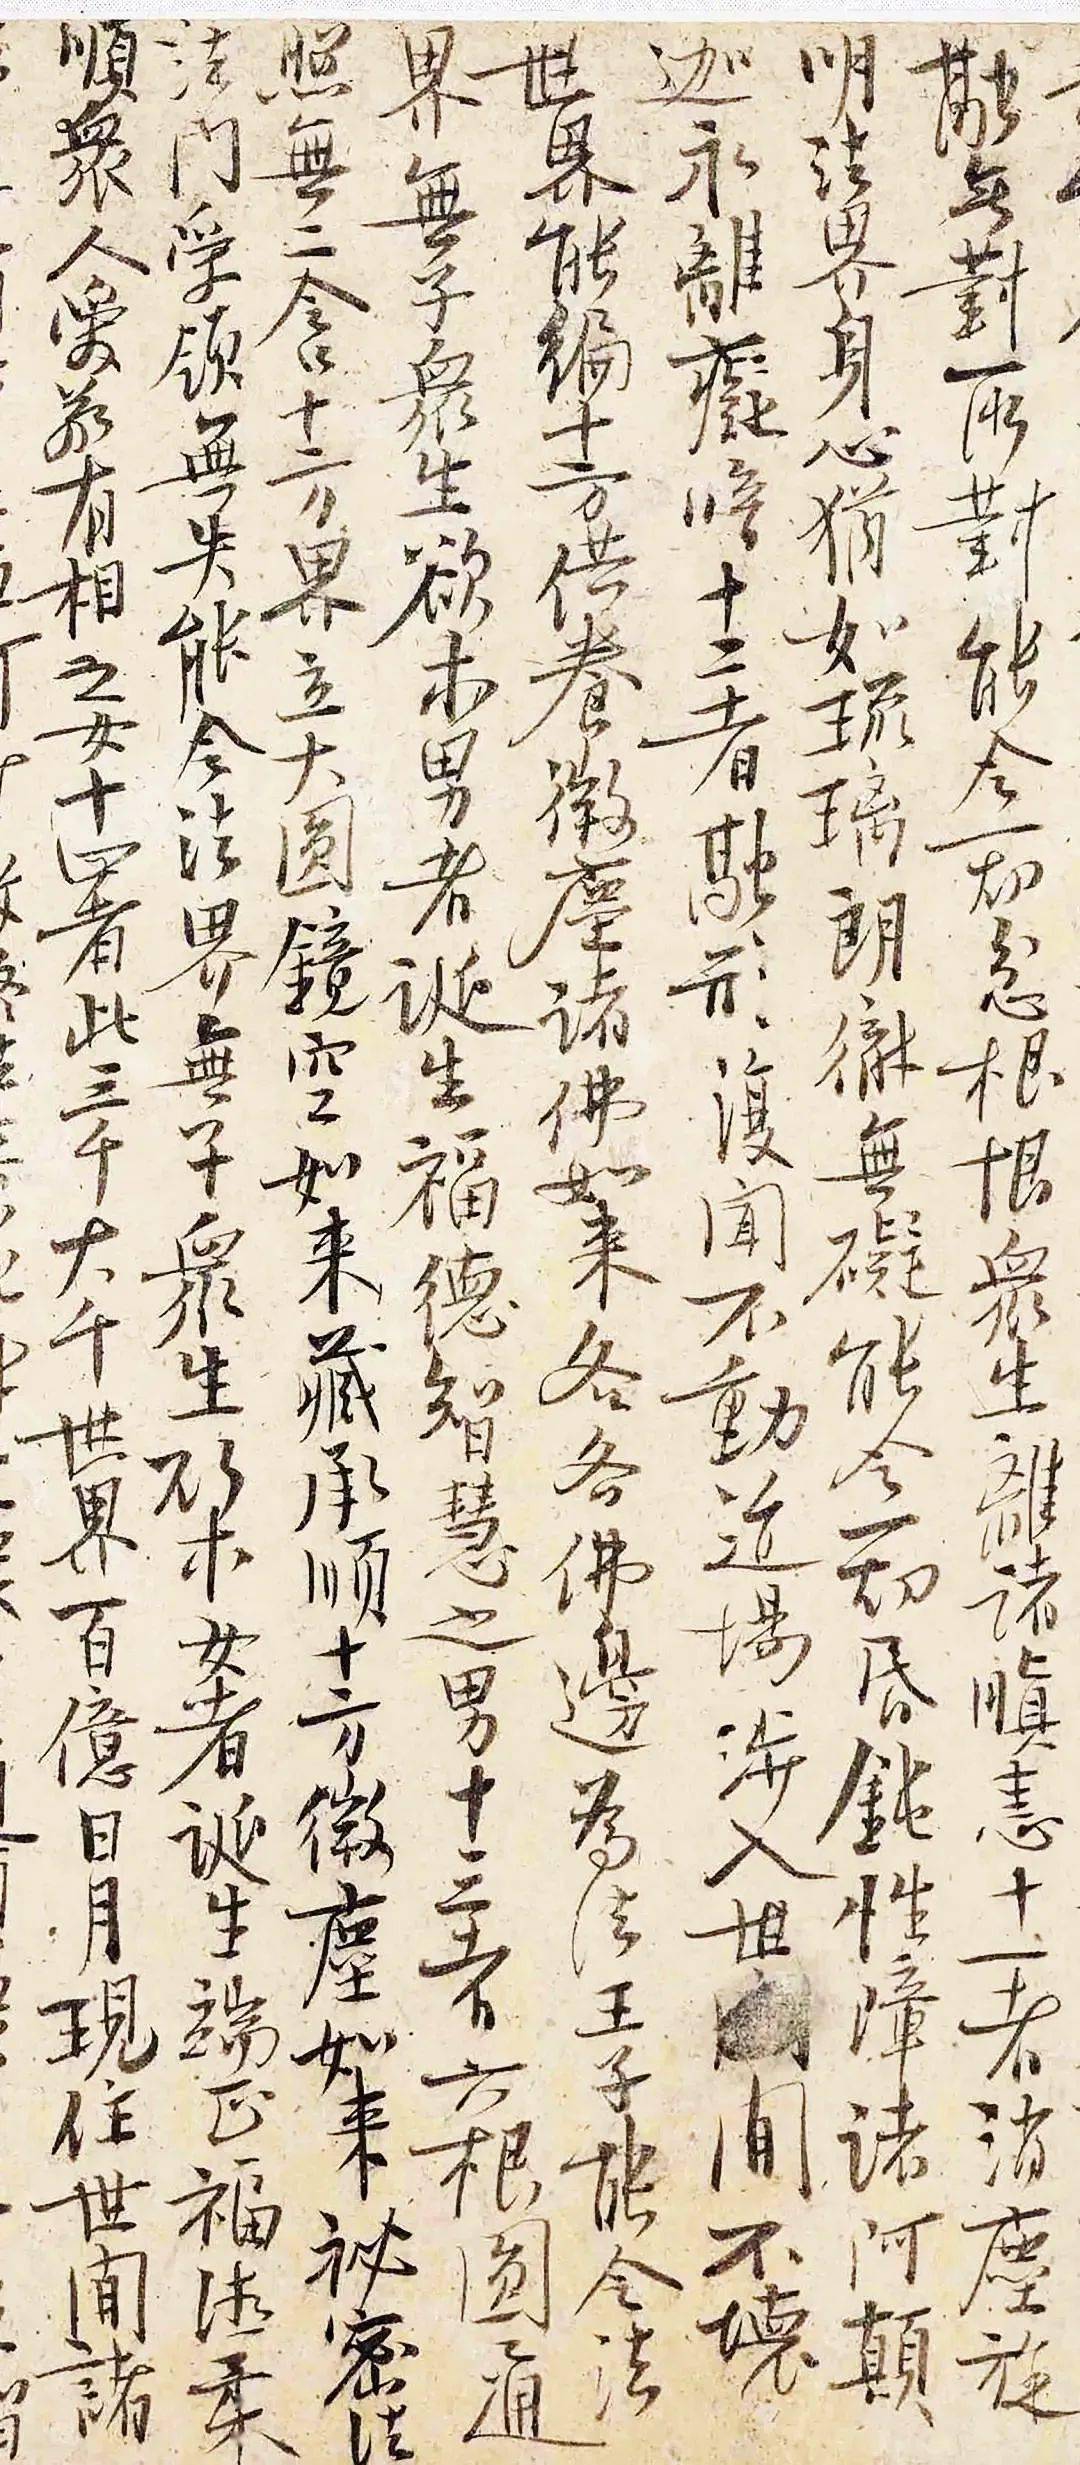 融無對所對能令一切忿根恨衆生離諸瞋恚十一者消塵旋
明法界身心猶如琉璃朗徹無礙能令一切昏鈍性障諸阿顛
迦永離癡暗十二者融形復聞不動道場涉入世間不壞
世界能遍十方供養微塵諸佛如来各各佛邊為法王子能令法
界無子衆生欲求男者誕生福德智慧之男十三者六根圓通
照無二含十方界立大圓鏡空如来藏承順十方微塵如来祕密法
法門受領無失能令法界無子衆生欲求女者誕生端正福德柔
順衆人愛敬有相之女十四者此三千大千世界百億日月現住世間諸